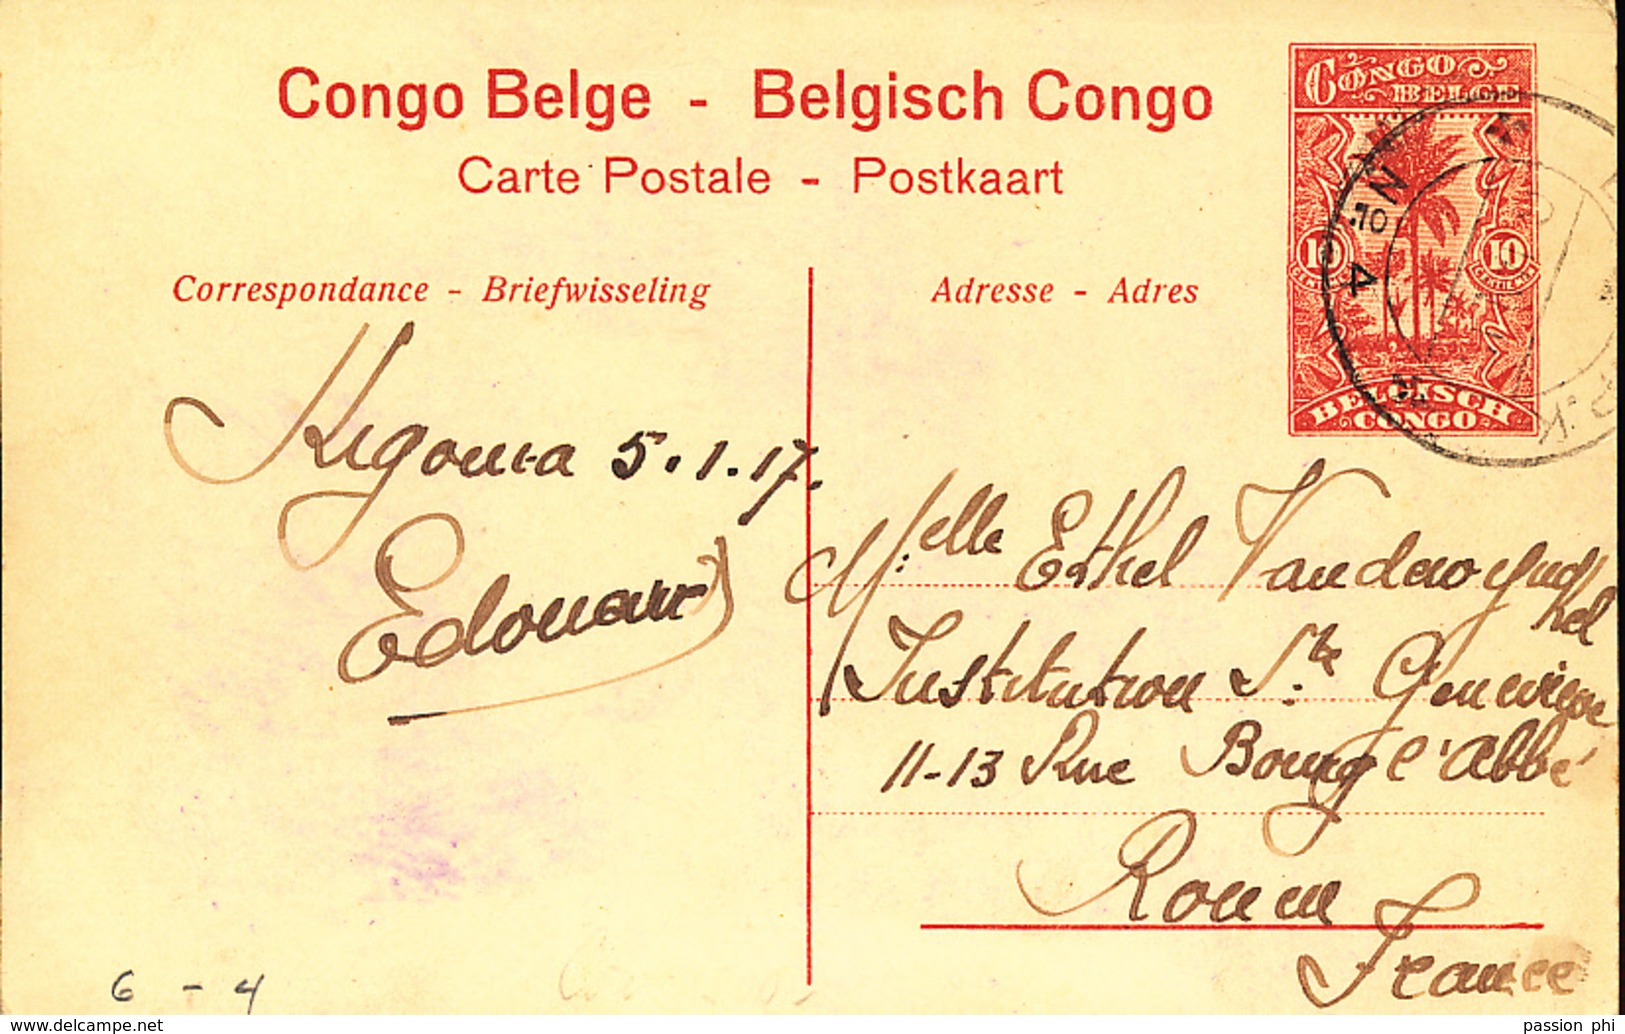 Congo Belge - Belgisch Congo
Carte Postale - Postkaart
CONGO
BELGE
10
10
BELGISCH
CONGO
No 4
Correspondance - Briefwisseling
Adresse - Adres
Kigoma 5.1.17.
Edouard
M.elle Ethel
Institution Ste Geneviève
11-13 Rue Bourg l'Abbé
Rouen
France
6 - 4
passion phi